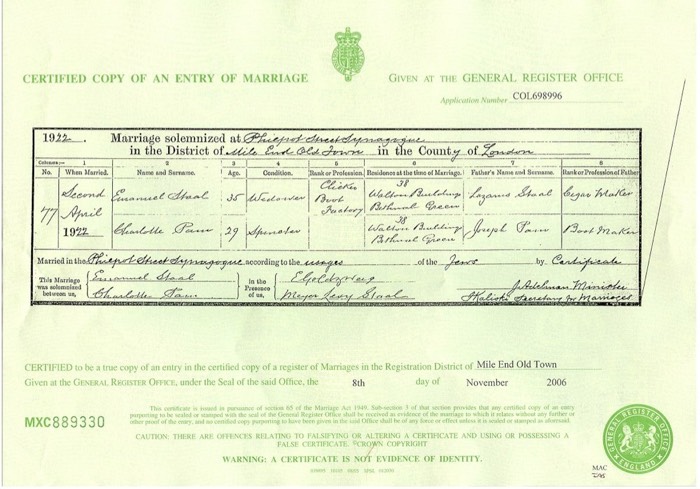 CERTIFIED COPY OF AN ENTRY OF MARRIAGE
GIVEN AT THE GENERAL REGISTER OFFICE
Application Number COL698996
1922. Marriage solemnized at Philpot Street Synagogue
in the District of Mile End Old Town in the County of London
Columns:— 1 2 3 4 5 6 7 8
No. When Married. Name and Surname. Age. Condition. Rank or Profession. Residence at the time of Marriage. Father's Name and Surname. Rank or Profession of Father
77 Second April 1922
Emanuel Staal 35 Widower Clicker Boot Factory 38 Walton Building Bethnal Green Lazarus Staal Cigar Maker
Charlotte Pam 29 Spinster 38 Walton Building Bethnal Green Joseph Pam Boot Maker
Married in the Philpot Street Synagogue according to the usages of the Jews by Certificate
This Marriage was solemnized between us, Emanuel Staal Charlotte Pam
in the Presence of us, Meyer Levy Staal
J. Adelman Minister
Secretary for Marriages
CERTIFIED to be a true copy of an entry in the certified copy of a register of Marriages in the Registration District of Mile End Old Town
Given at the GENERAL REGISTER OFFICE, under the Seal of the said Office, the 8th day of November 2006
MXC889330
This certificate is issued in pursuance of section 65 of the Marriage Act 1949. Sub-section 3 of that section provides that any certified copy of an entry
purporting to be sealed or stamped with the seal of the General Register Office shall be received as evidence of the marriage to which it relates without any further or
other proof of the entry, and no certified copy purporting to have been given in the said Office shall be of any force or effect unless it is sealed or stamped as aforesaid.
CAUTION: THERE ARE OFFENCES RELATING TO FALSIFYING OR ALTERING A CERTIFICATE AND USING OR POSSESSING A
FALSE CERTIFICATE. ©CROWN COPYRIGHT
WARNING: A CERTIFICATE IS NOT EVIDENCE OF IDENTITY.
GENERAL REGISTER OFFICE
ENGLAND
MAC